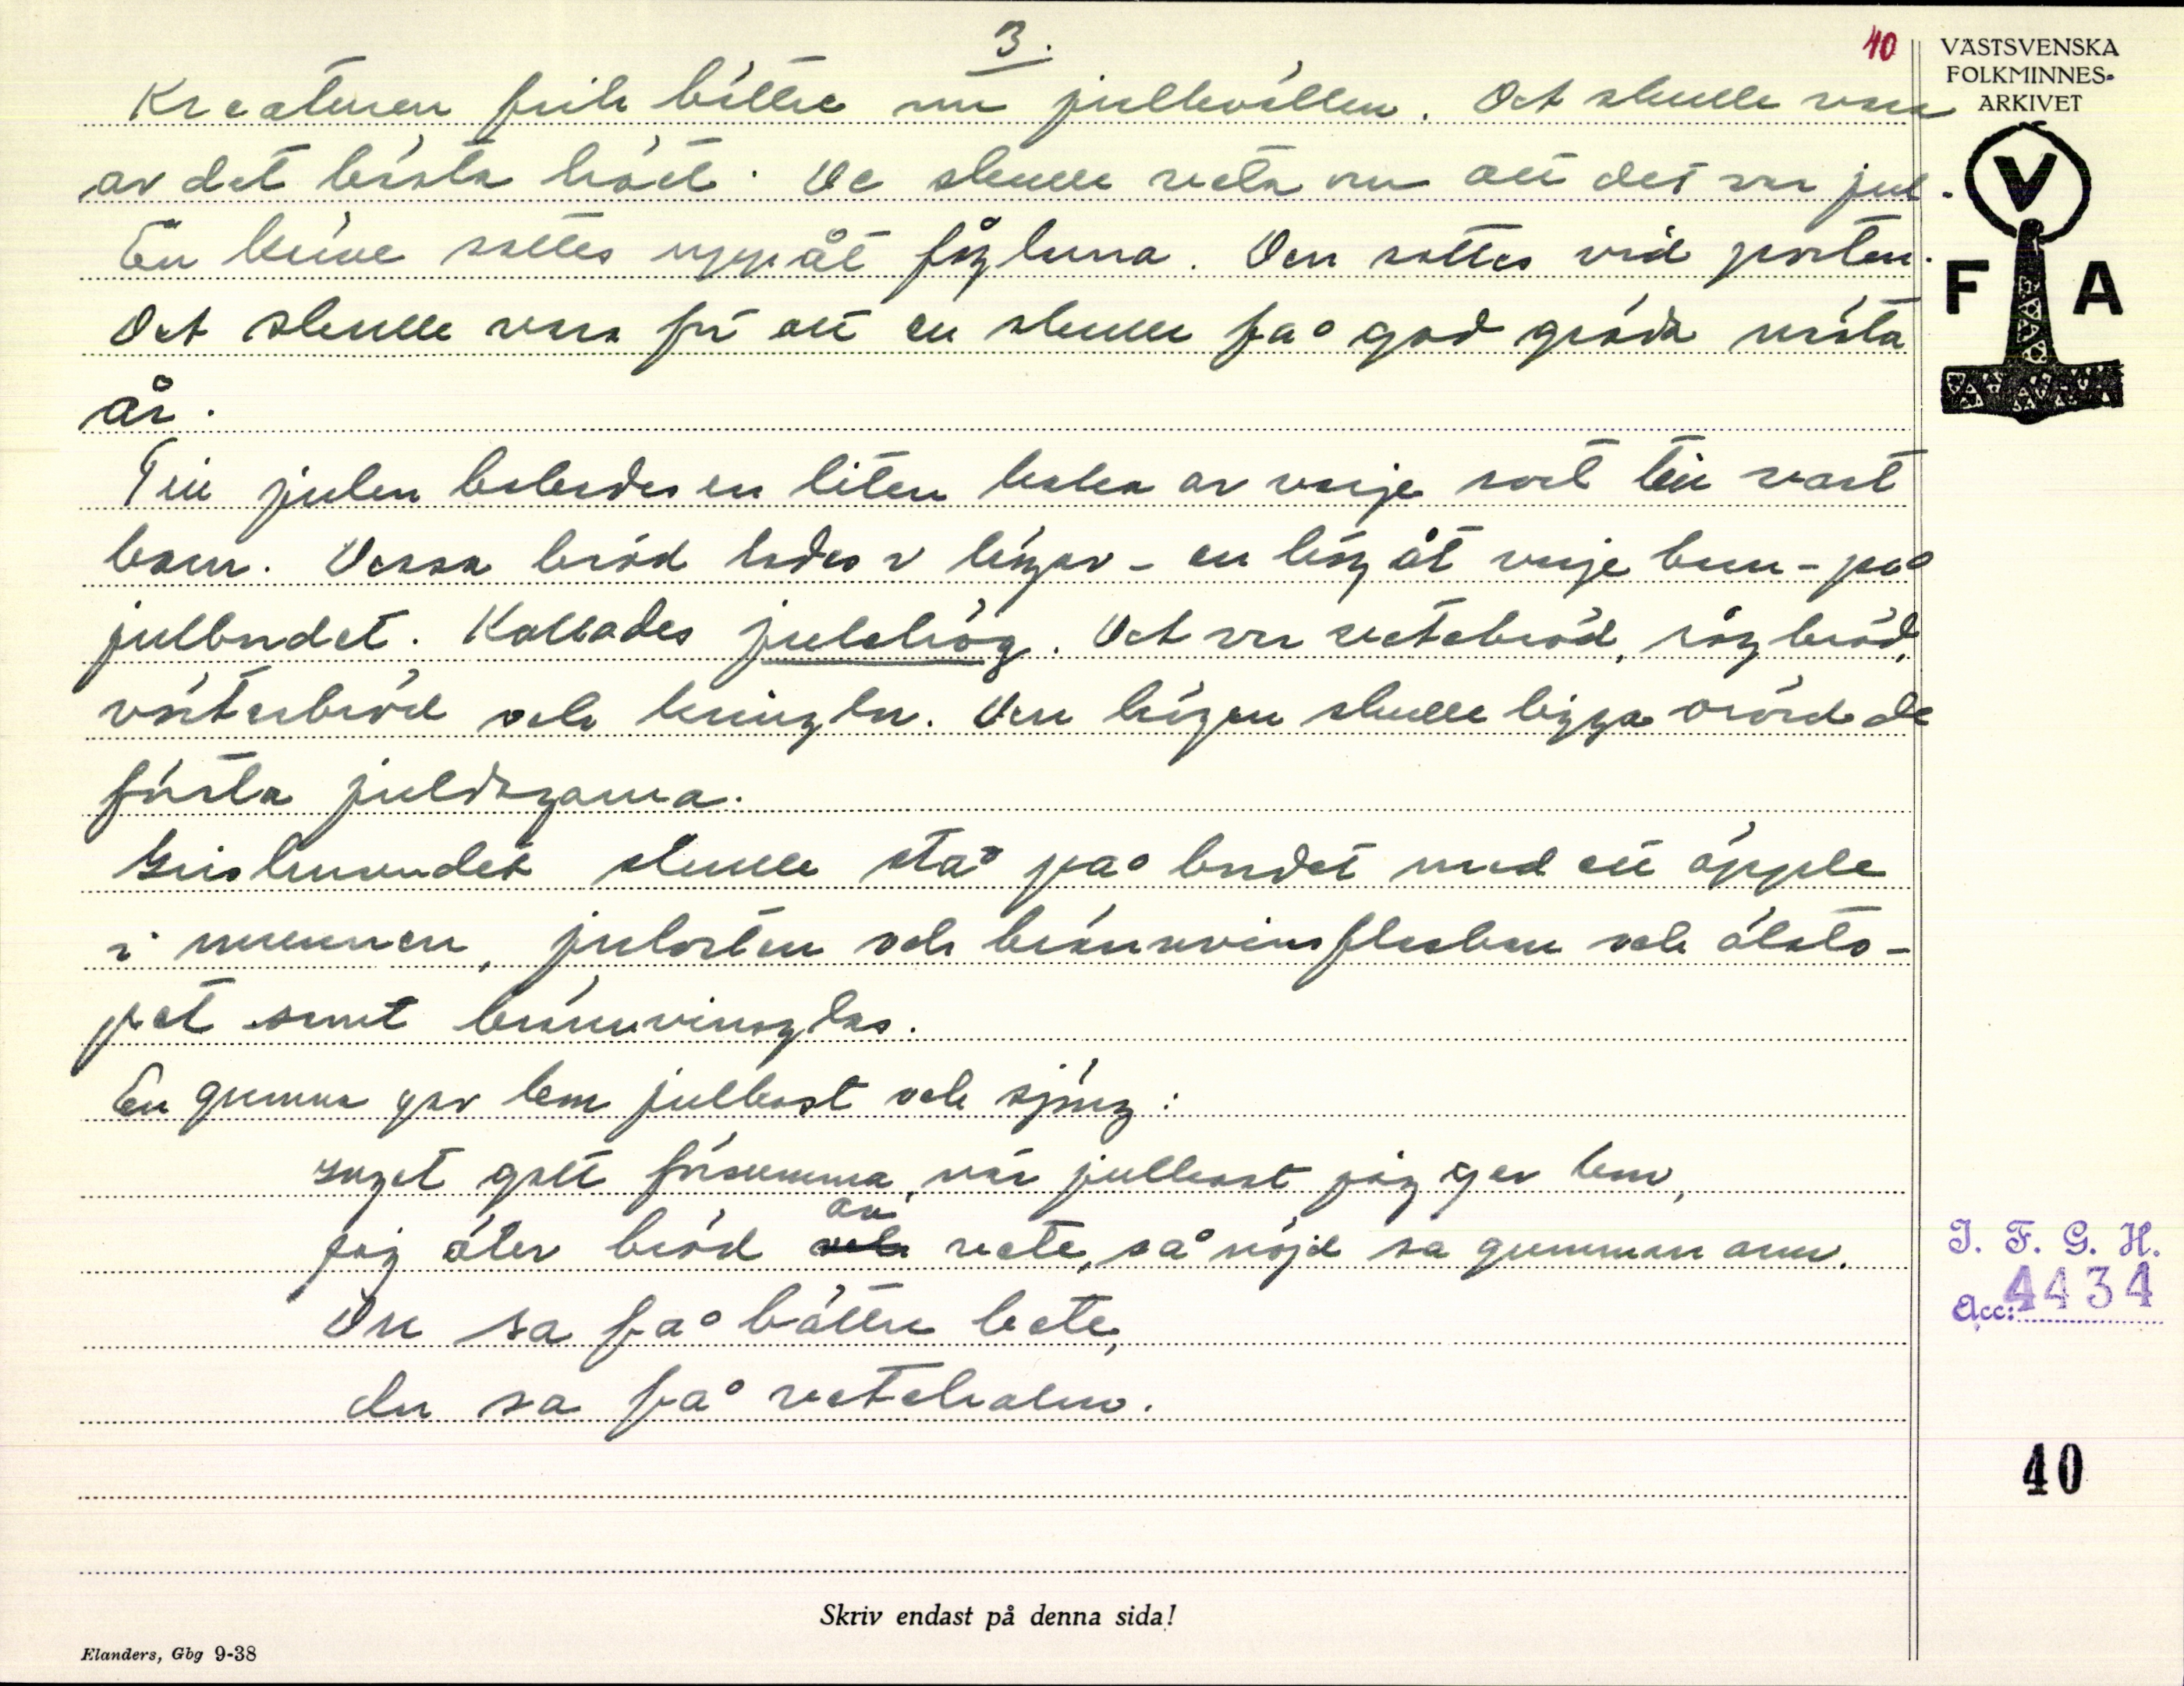 3.
40
VÄSTSVENSKA
FOLKMINNES-
ARKIVET
V
F A
Kreaturen fick bättre om julkvällen. Det skulle vara
av det bästa höet. De skulle veta om att det var jul.
En kärve sattes upp åt fåglarna. Den sattes vid porten.
Det skulle vara för att en skulle få god gröda nästa
år.
Till julen bakades en liten kaka av varje sort till vart
barn. Dessa bröd lades i högar - en hög åt varje barn - på
julbordet. Kallades julahög. Det var vetebröd, rågbröd,
vörtebröd och kringlor. Den högen skulle ligga orörd de
första juldagarna.
Grishuvudet skulle stå på bordet med ett äpple
i munnen, julosten och brännvinsflaskan och ölsto-
pet samt brännvinsglas.
En gumma gav kom julkost och sjöng:
Inget gott försumma, när julkost jag ger kom,
jag äter bröd av vete, så nöjd sa gumman om.
Du sa få bättre bete,
du sa få vetehalm.
I. F. G. H.
Acc: 4434
40
Skriv endast på denna sida!
Elanders, Gbg 9-38